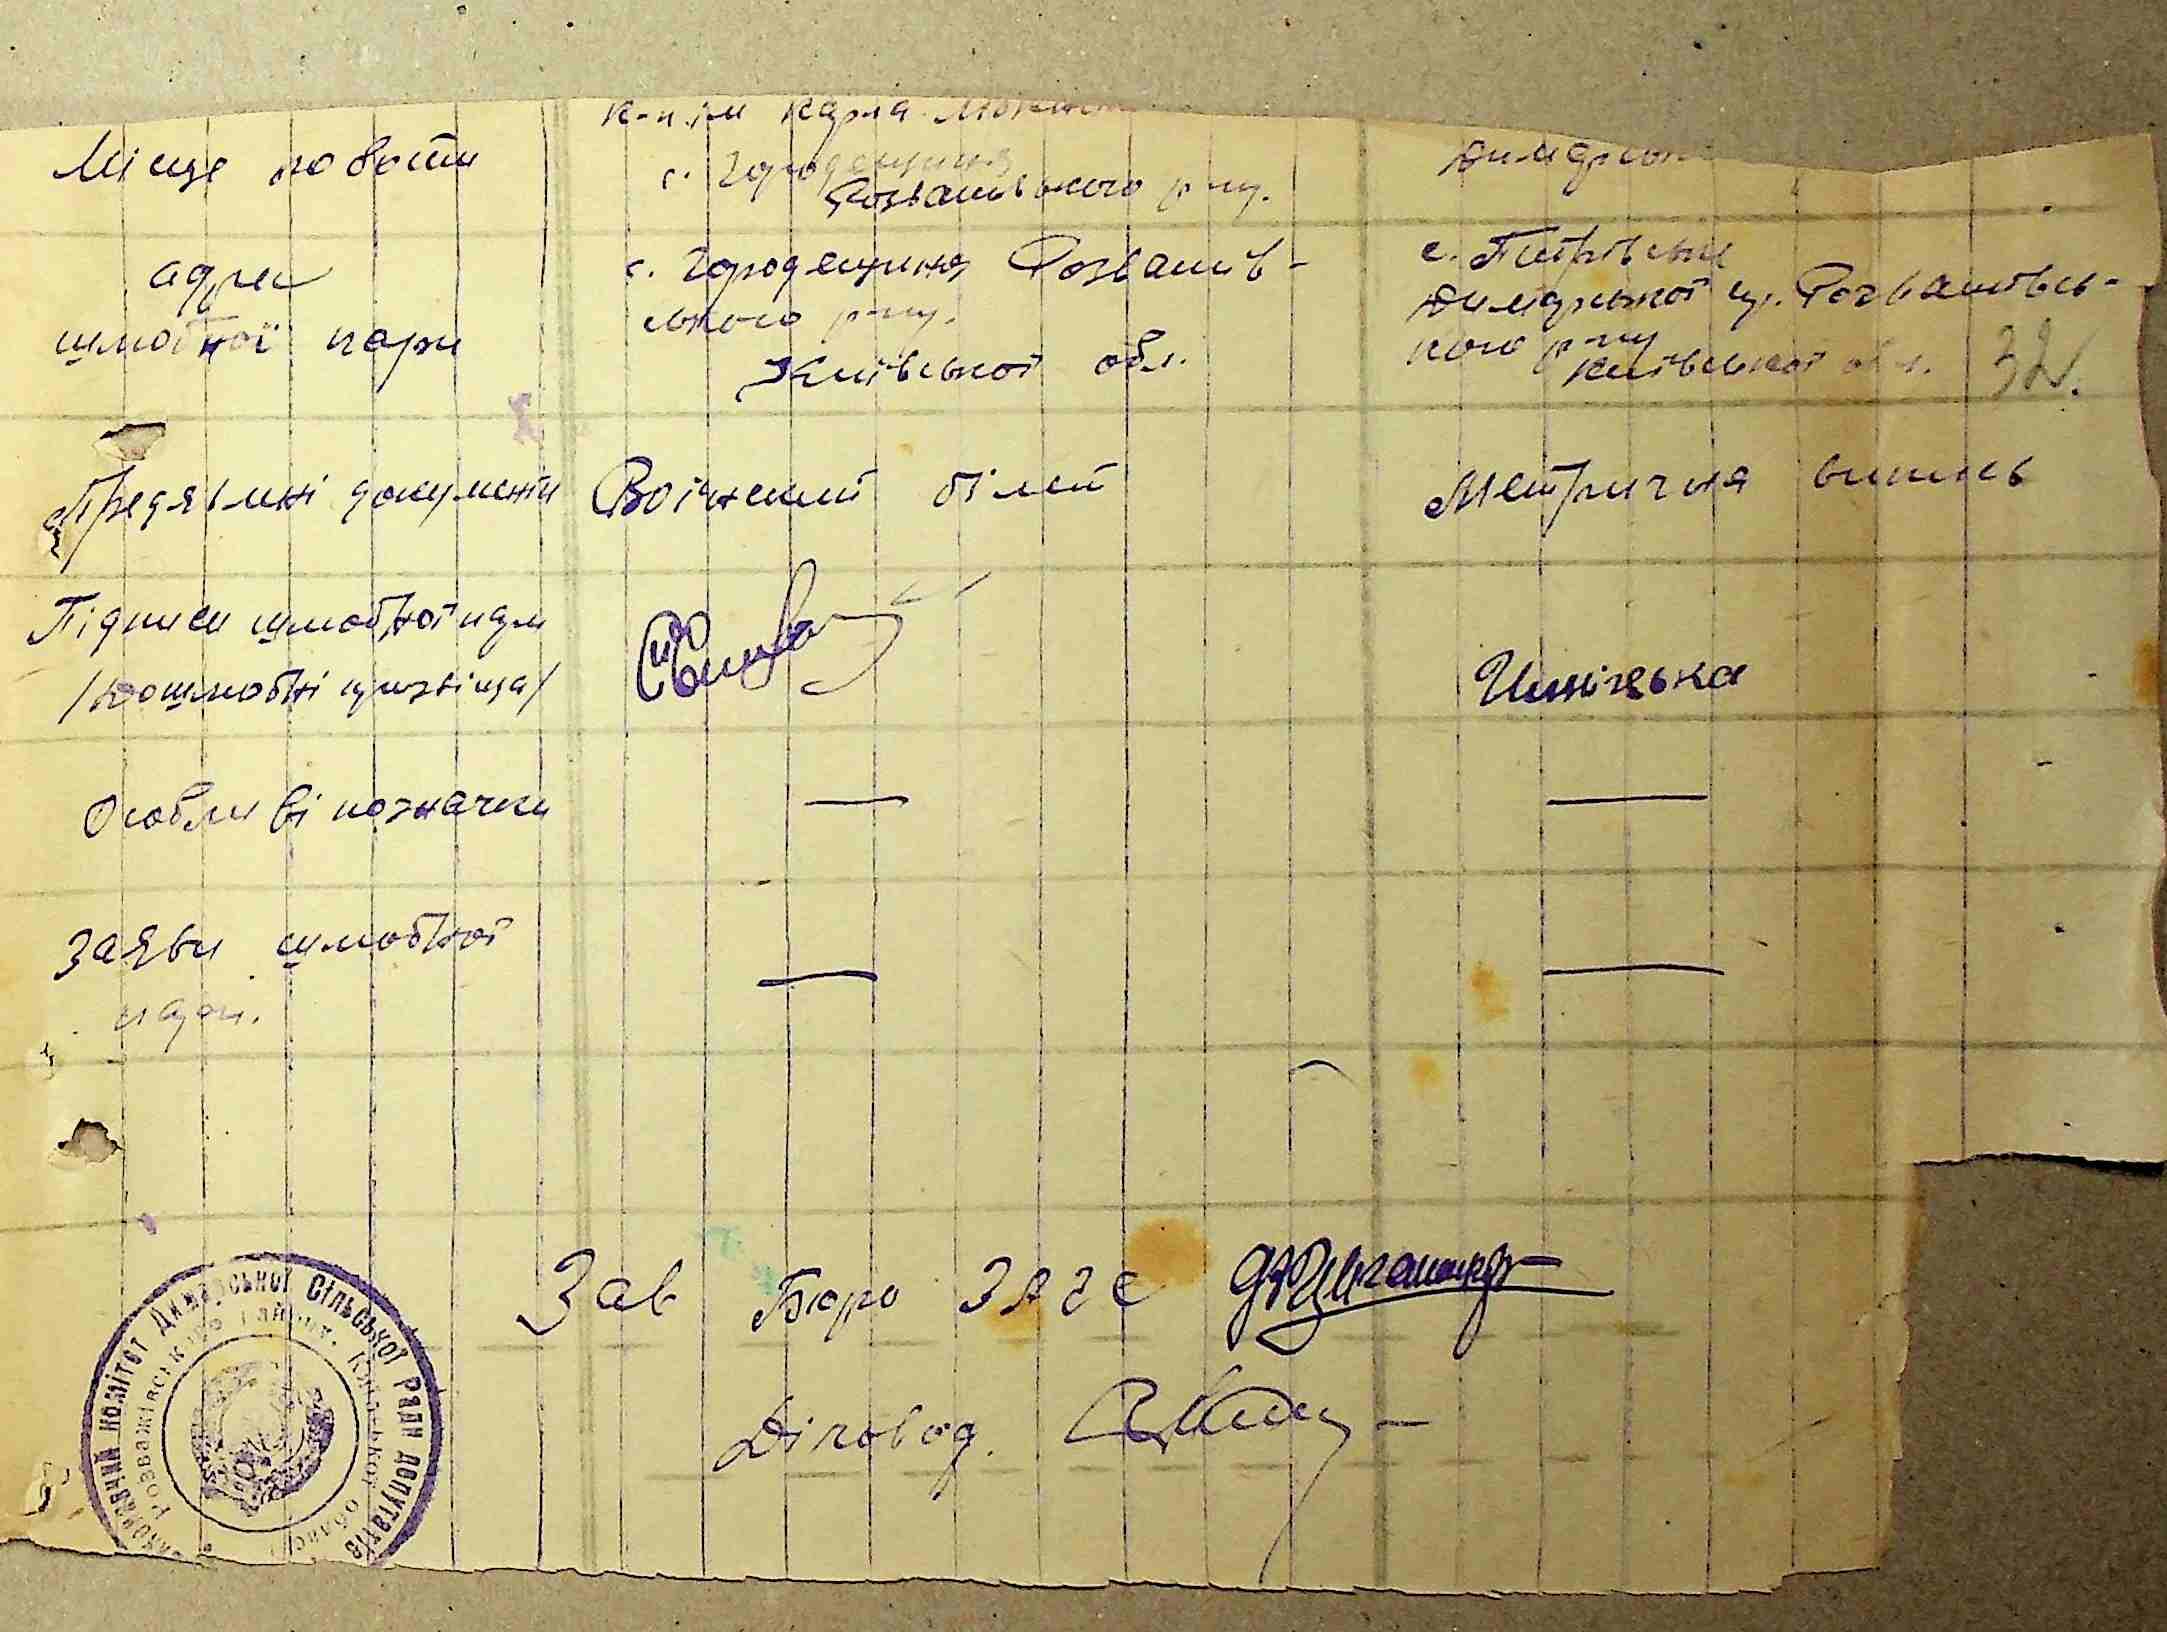 к-п ім Карла
Місце роботи
с. Городещина
Розважівського р-ну.
Димарська
адрес
шлюбної пари
с. Городещина Розважів-
ського р-ну.
Київської обл.
с. Петрівське
Димарської Розважівсь-
кого р-ну
Київської обл. 32.
Предявлені документи
Воїнський білет
Метрична випись
Підписи шлюбної пари
/дошлюбні прізвища/
Особливі позначки
—
—
Заяви шлюбної
пари.
—
—
Зав Бюро ЗАГС
Діловод.
Виконавчий комітет Димарської Сільської Ради депутатів
Розважівського району, Київської області